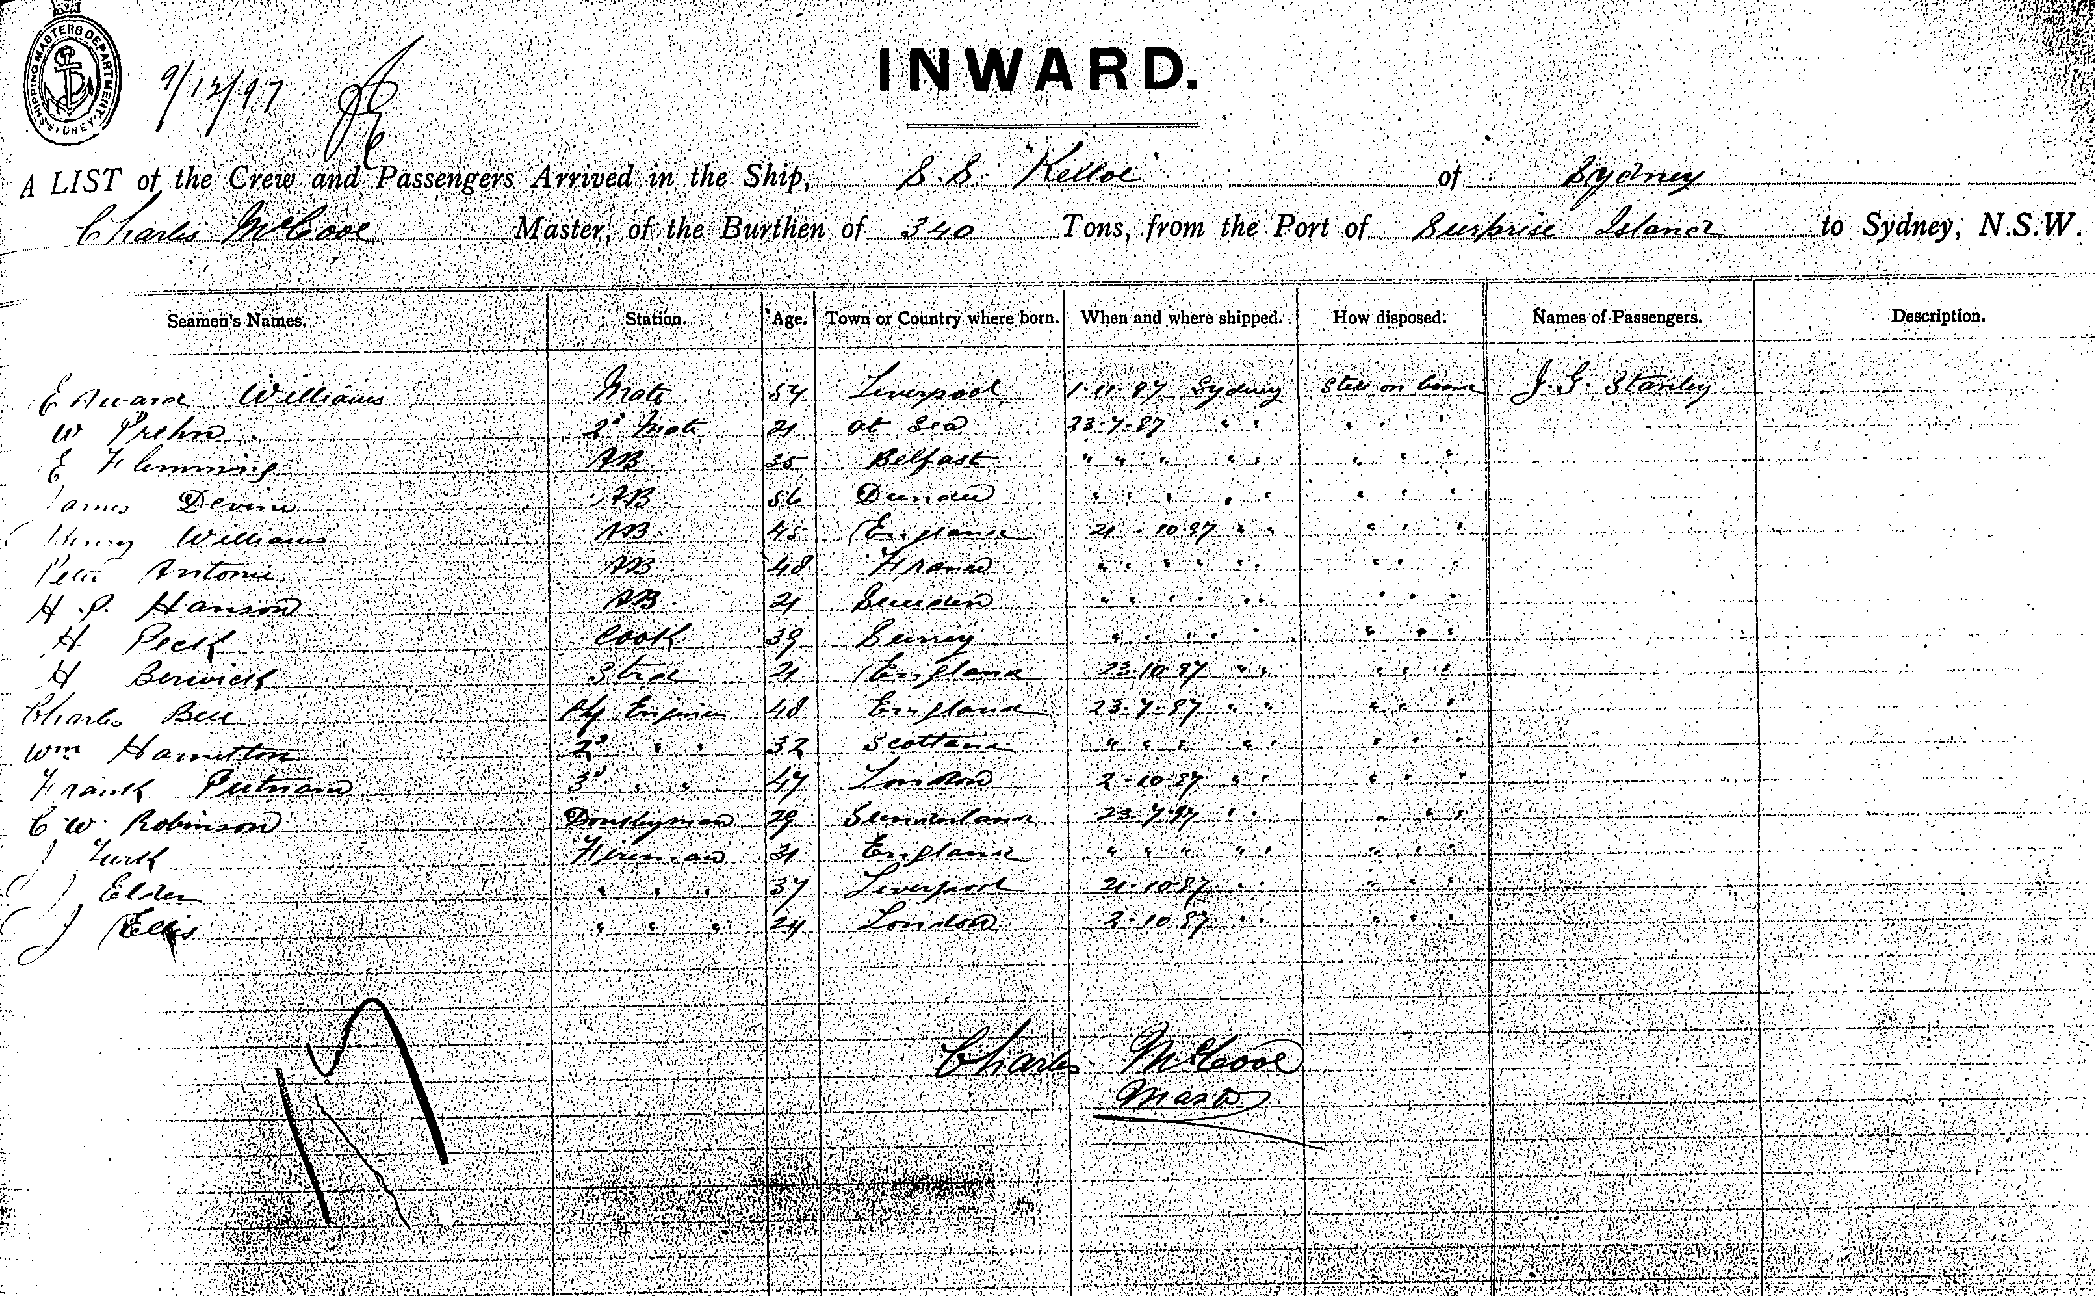 SHIPPING MASTERS DEPARTMENT SYDNEY
9/12/97
INWARD.
A LIST of the Crew and Passengers Arrived in the Ship, S.S. "Kelloe" of Sydney
Charles McCooe Master, of the Burthen of 340 Tons, from the Port of Surprise Island to Sydney, N.S.W.
Seamen's Names. Station. Age. Town or Country where born. When and where shipped. How disposed. Names of Passengers. Description.
Edward Williams Mate 54 Liverpool 1-11-97 Sydney Still on board J. G. Stanley
W Prehn 2d Mate 21 at Sea 23-7-97 " " " " "
E Flemming AB 35 Belfast " " " " " " " "
James Devine AB 56 Dundee " " " " " " " "
Henry Williams AB 45 England 21-10-97 " " " " "
Peter Antonie AB 48 France " " " " " " " "
H. P. Hanson AB 21 Sweden " " " " " " " "
H Peck Cook 39 Surrey " " " " " " " "
H Berwick Strd 21 England 23-10-97 " " " " "
Charles Bell Chf Engineer 48 England 23-7-97 " " " " "
Wm Hamilton 2d " " 32 Scotland " " " " " " " "
Frank Putnam 3d " " 47 London 2-10-97 " " " " "
C. W. Robinson Donkeyman 29 Sunderland 23-7-97 " " " " "
J Turk Fireman 31 England " " " " " " " "
J Elder " " " 37 Liverpool 21-10-97 " " " " "
J Ellis " " " 24 London 2-10-97 " " " " "
Charles McCooe
Master